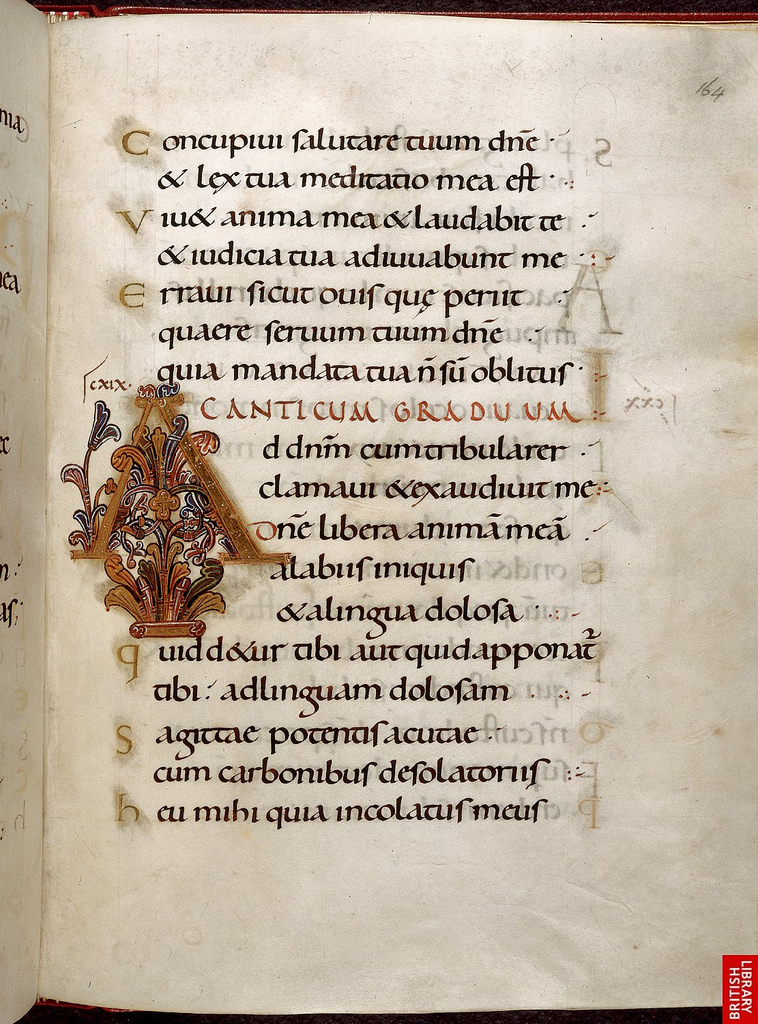 164
Concupiui salutare tuum dn̄e
& lex tua meditatio mea est
Viu& anima mea & laudabit te
& iudicia tua adiuuabunt me
Erraui sicut ouis quę periit
quaere seruum tuum dn̄e
quia mandata tua n̄ sū oblitus
cxix.
CANTICUM GRADUUM
Ad dnm̄ cum tribularer
clamaui & exaudiuit me
Dn̄e libera animā meā
a labiis iniquis
& a lingua dolosa
quid d&ur tibi aut quid apponat᷑
tibi ad linguam dolosam
Sagittae potentis acutae
cum carbonibus desolatoriis
heu mihi quia incolatus meus
BRITISH
LIBRARY